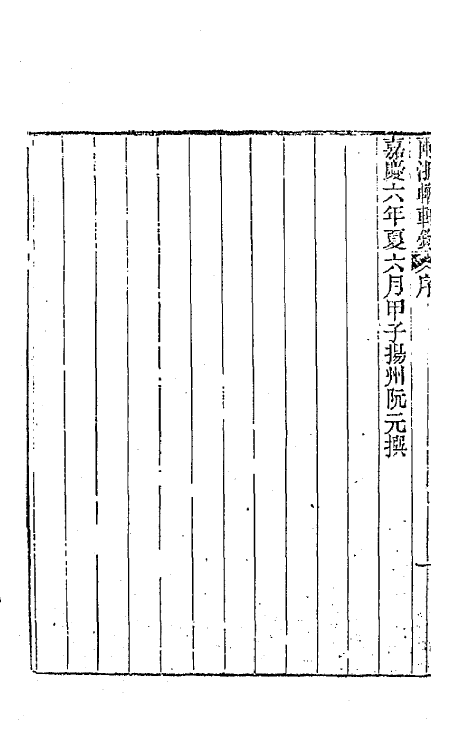 兩浙輶軒錄 序
嘉慶六年夏六月甲子揚州阮元撰